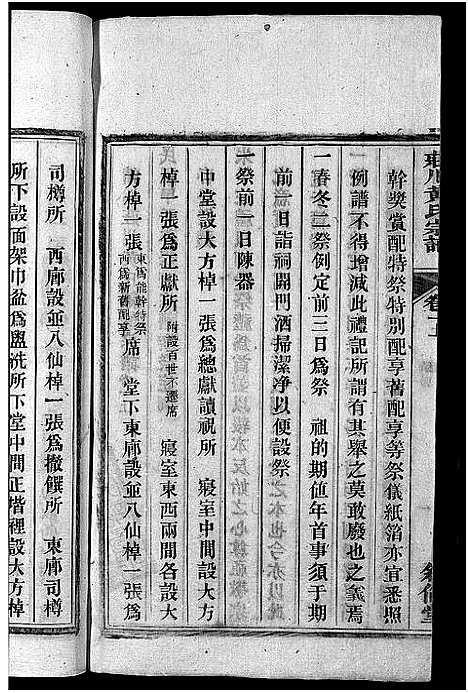 黃氏宗譜
卷
幹獎賞配特祭特別配享舊配享等祭儀紙箔亦宜悉照
一例譜不得增減此禮記所謂有其舉之莫敢廢也之義焉
一春冬二祭倒定前三日為祭 祖的期值年首事須于期
前一日詣祠開門洒掃潔淨以便設祭
一祭前一日陳器
中堂設大方棹一張為總獻讀祝所 寢室中間設大方
棹一張為正獻所 附設百世不遷席 寢室東西兩間各設大
方棹一張 東為能幹特祭 西為新舊配享 席 堂下東廊設並八仙棹一張為
司樽所 西廊設並八仙棹一張為撤饌所 東廊司樽
所下設面架巾盆為盥洗所下堂中間正楷裡設大方棹